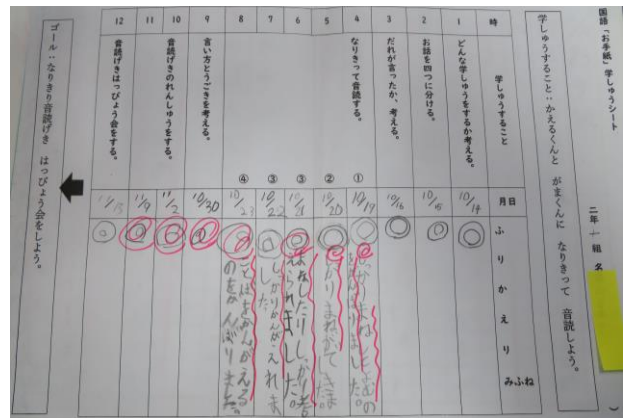 国語「お手紙」学しゅうシート
二年 組 名
学しゅうすること:かえるくんと がまくんに なりきって 音読しよう。
時 学しゅうすること 月日 ふりかえり みふね
1 どんな学しゅうをするか考える。 10/14 ◎
2 お話を四つに分ける。 10/15 ◎
3 だれが言ったか、考える。 10/16 ◎
4 なりきって音読する。 ① 10/19 ◎
5 ② 10/20 ◎
6 ③ 10/21 ◎
7 ③ 10/22 ◎ しっかりかんがえれました。
8 ④ 10/23 ◎ ことばをかんがえるのをがんばりました。
9 言い方とうごきを考える。 10/30 ◎
10 音読げきのれんしゅうをする。 11/2 ◎
11 11/9 ◎
12 音読げきはっぴょう会をする。 11/13 ◎
ゴール:なりきり音読げき はっぴょう会をしよう。